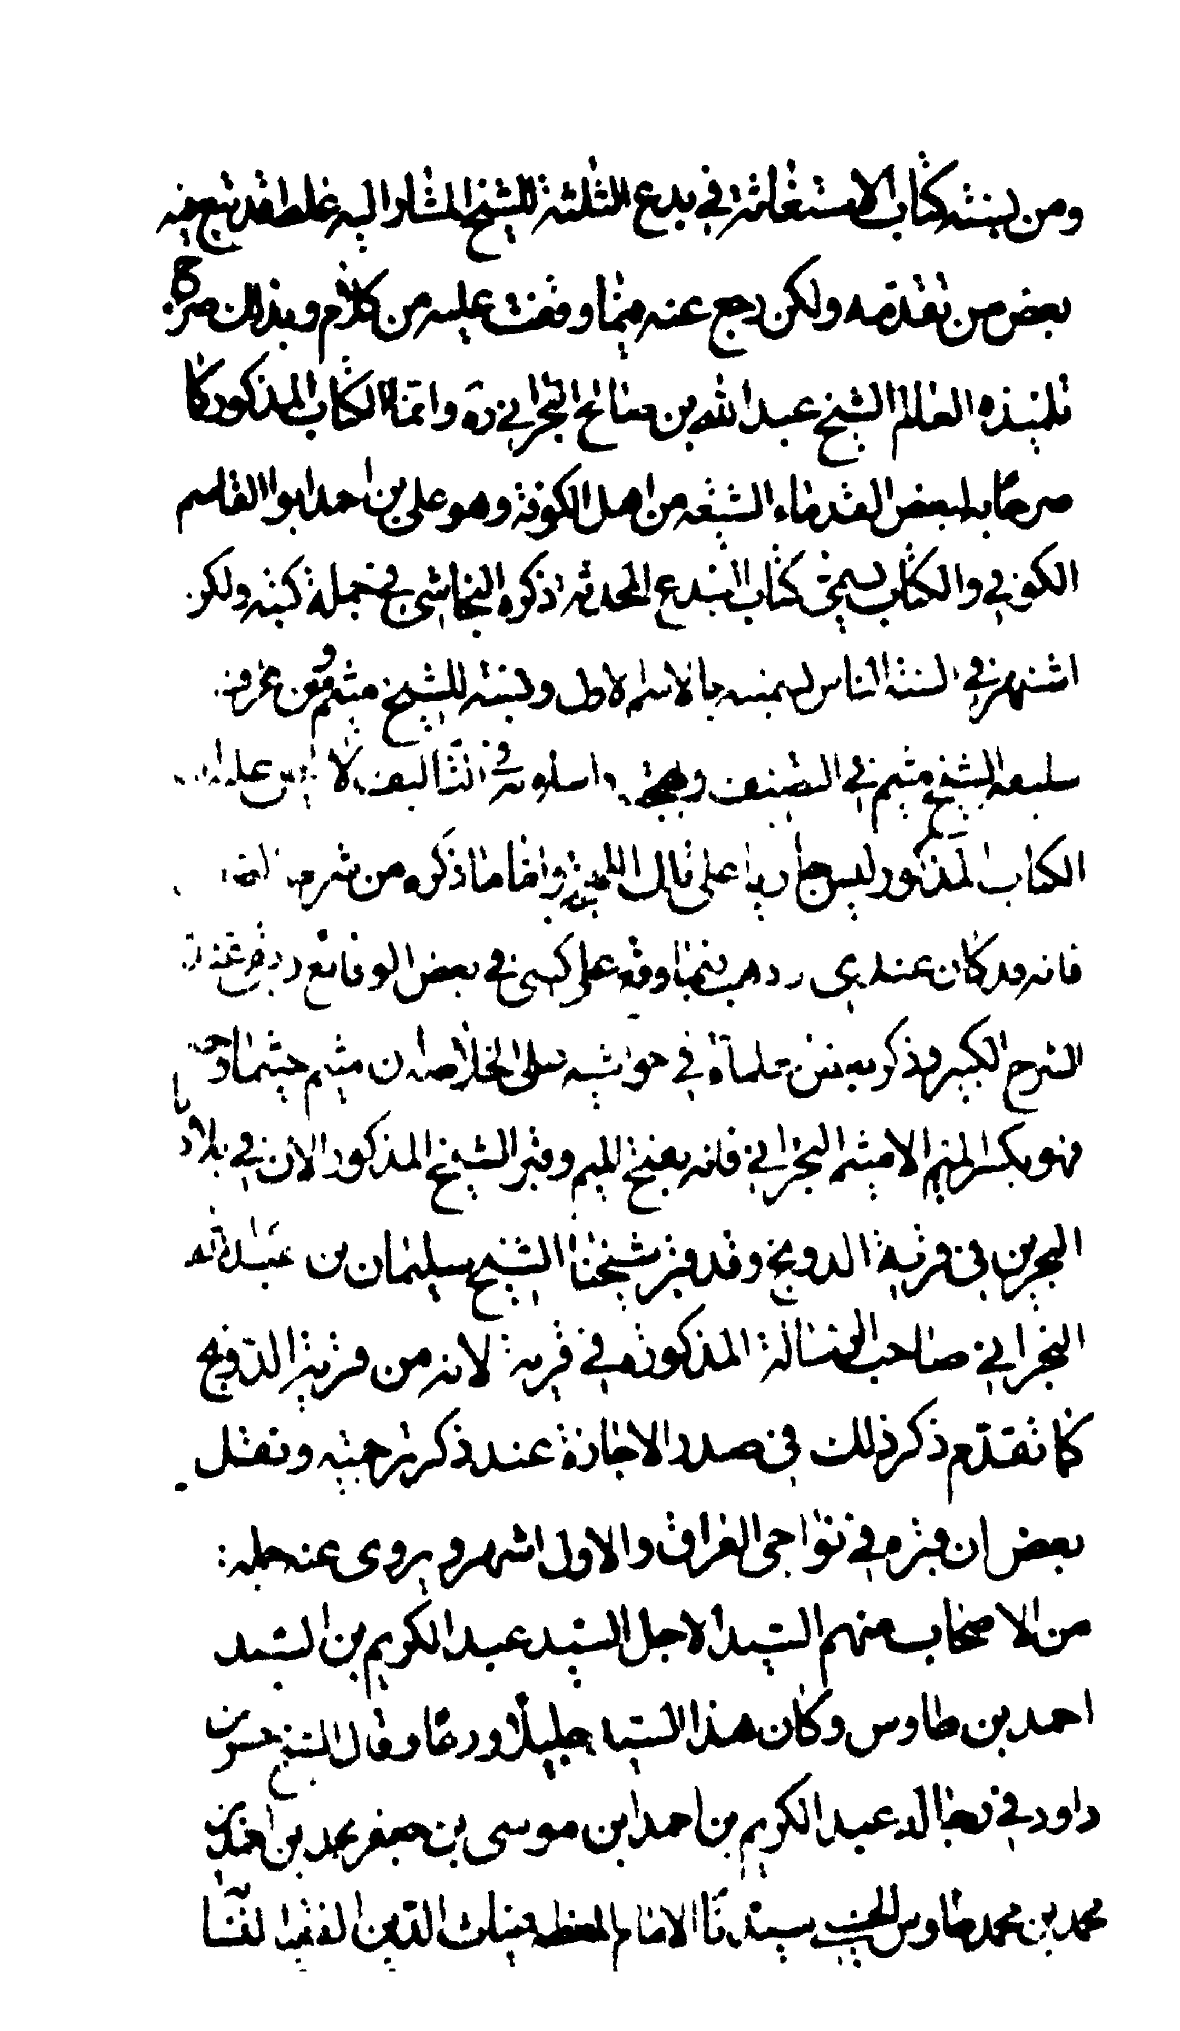 ومن نسبته كتاب الاستغاثة في بدع الثلثة للشيخ المشار اليه غلط قد تبع فيه
بعض من تقدمه ولكن رجع عنه فيما وقفت عليه من كلام وبذلك صرح
تلميذه العالم الشيخ عبد الله بن صالح البحراني ره وانما الكتاب المذكور كما
صرحا به لبعض القدماء الشيعه من اهل الكوفة وهو علي بن احمد ابو القاسم
الكوفي والكتاب يسمى كتاب البدع المحدثه ذكره النجاشي في جملة كتبه ولكن
اشتهر في السنة الناس تسميته بالاسم الاول ونسبته للشيخ ميثم ومن عرف
سليقة الشيخ ميثم في التصنيف واسلوبه في التاليف لا
الكتاب المذكور ليس جاريا على تلك واما ما ذكره من شرح
فانه قد كان عندي وذهب فيما وقع على كتبي في بعض الوقائع
الشرح الكبير وذكر بعض علمائنا في حواشيه على الخلاصه ان ميثم حيثما وجد
فهو بكسر الميم الا ميثم البحراني فانه بفتح الميم وقبر الشيخ المذكور الان في بلاد
البحرين في قرية الدونج وقد قبر شيخنا الشيخ سليمان بن عبد الله
البحراني صاحب الرسالة المذكورة في قربه لانه من قرية الدونج
كما تقدم ذكر ذلك في صدر الاجازة عند ذكر ترجمته ونقل
بعض ان قبره في نواحي العراق والاول اشهر ويروي عنه جمله
من الاصحاب منهم السيد الاجل السيد عبد الكريم بن السيد
احمد بن طاوس وكان هذا السيد جليلا ورعا وقال الشيخ حسن بن
داود في رجاله عبد الكريم بن احمد ابن موسى بن جعفر بن محمد بن احمد بن
محمد بن محمد طاوس الحسني سيدنا الامام المعظم غياث الدين الفقيه النسا